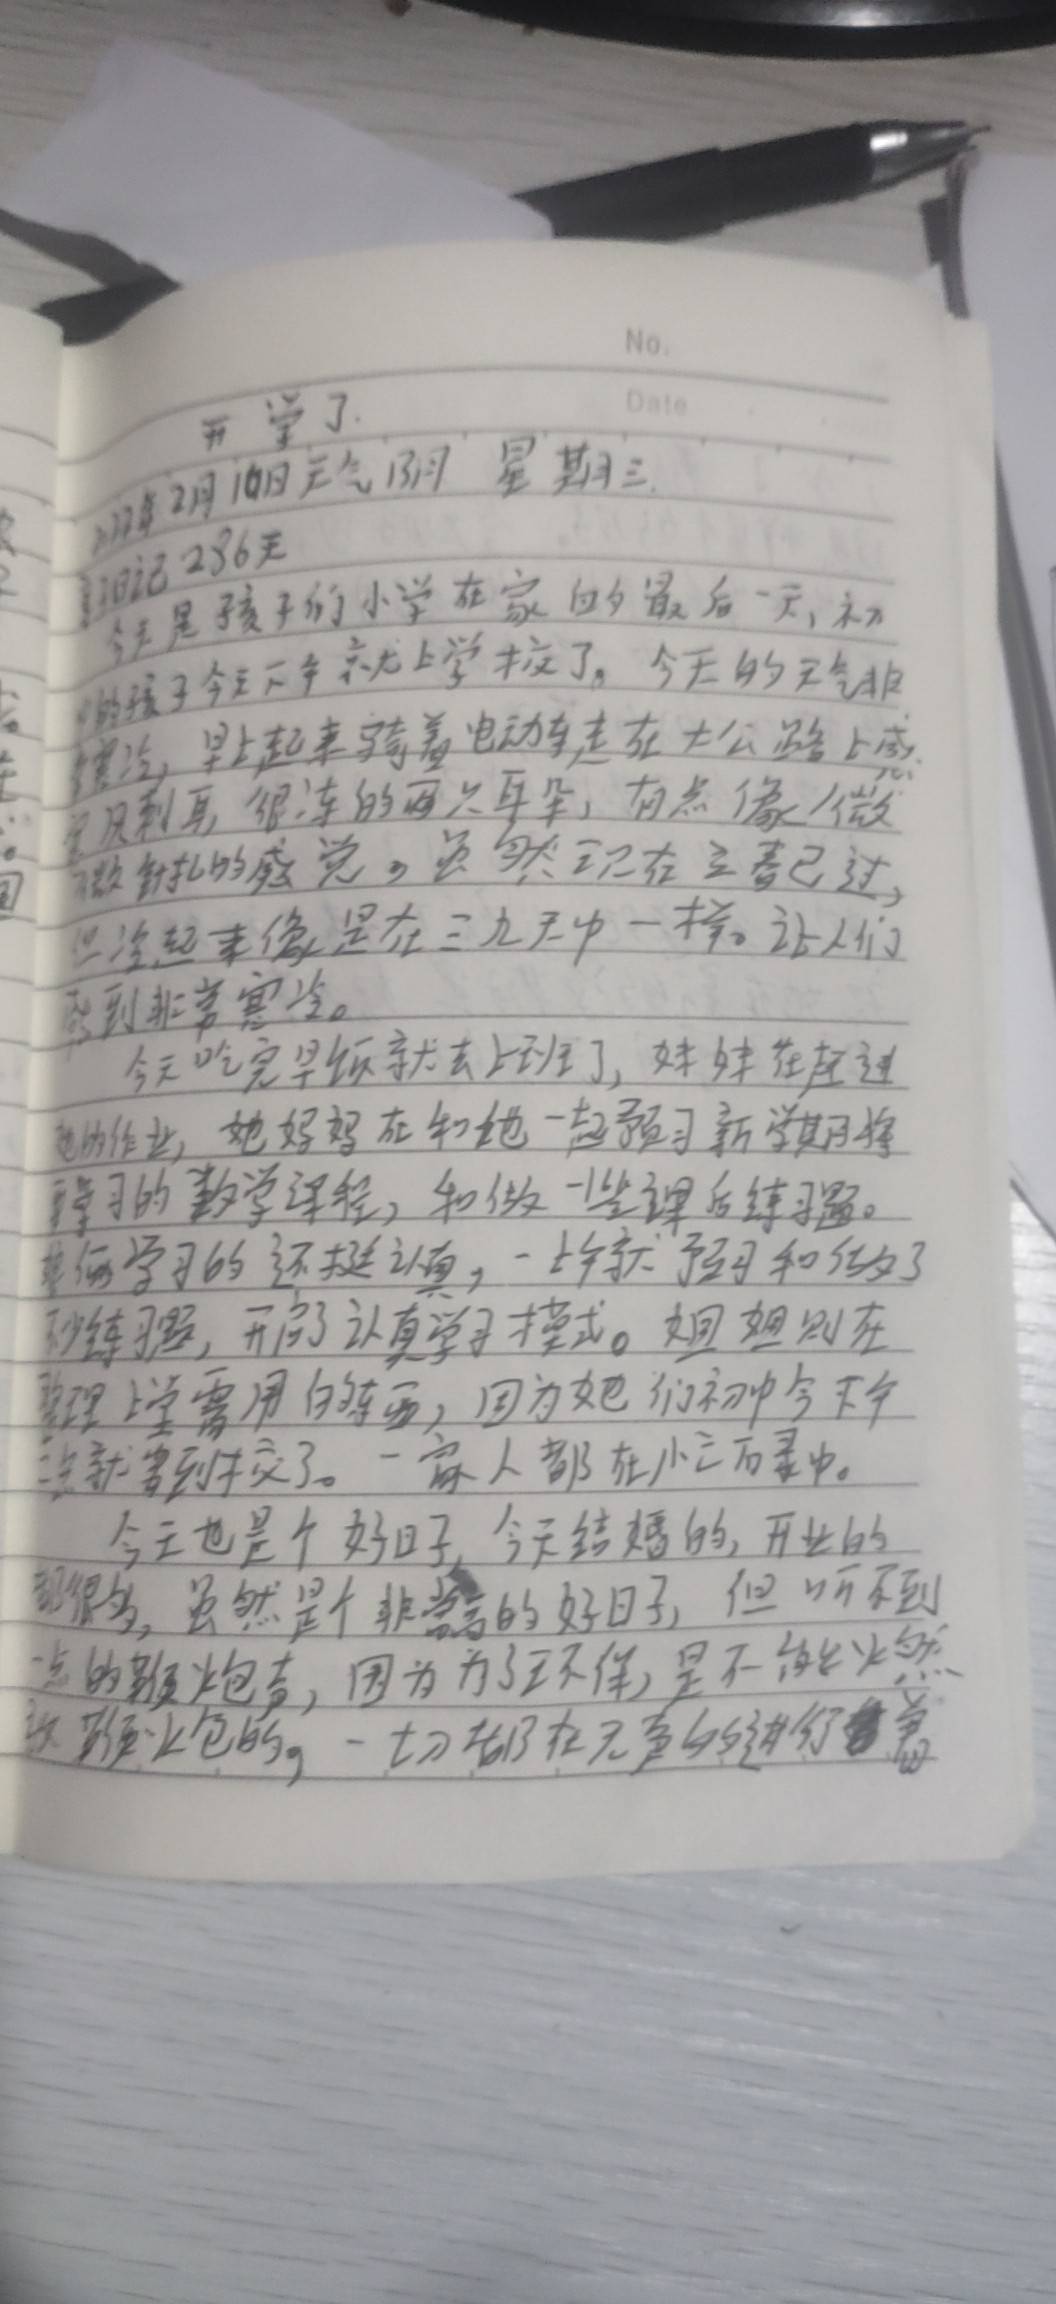 No.
Date
开学了.
2022年2月16日天气阴 星期三.
写日记286天
今天是孩子们小学在家的最后一天,初
中的孩子今天下午就上学校了。今天的天气非
常寒冷,早上起来骑着电动车走在大公路上感
觉风刺耳,很冻的两只耳朵,有点像/微
微针扎的感觉。虽然现在立春已过,
但冷起来像是在三九天中一样。让人们
感到非常寒冷。
今天吃完早饭就去上班了,妹妹在赶进
她的作业,她妈妈在和她一起预习新学期将
要学习的数学课程,和做一些课后练习题。
她俩学习的还挺认真,一上午就预习和做了
不少练习题,开启了认真学习模式。姐姐则在
整理上学需用的东西,因为她们初中今下午
二点就要到校了。一家人都在忙忙碌中。
今天也是个好日子,今天结婚的,开业的
都很多,虽然是个非常的好日子,但听不到
一点的鞭炮声,因为为了环保,是不能燃
放鞭炮的,一切都在无声的进行着